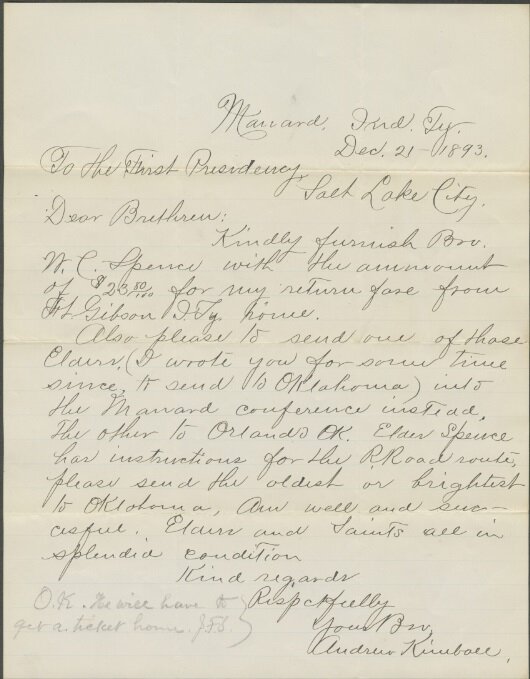 Manard, Ind. Ty.
Dec. 21- 1893.
To the First Presidency
Salt Lake City.
Dear Brethren:
Kindly furnish Bro.
W. C. Spence with the ammount
of $23 80/100 for my return fare from
Ft Gibson I. Ty. home.
Also please to send one of those
Elders, (I wrote you for some time
since, to send to Oklahoma) into
the Manard conference instead,
the other to Orlando OK. Elder Spence
has instructions for the R.Road route,
please send the oldest or brightest
to Oklahoma, Am well and suc-
cesful. Elders and Saints all in
splendid condition
Kind regards
Respctfully
Your Bro,
Andrew Kimball,
O.K. He will have to
get a ticket home. J.F.S.